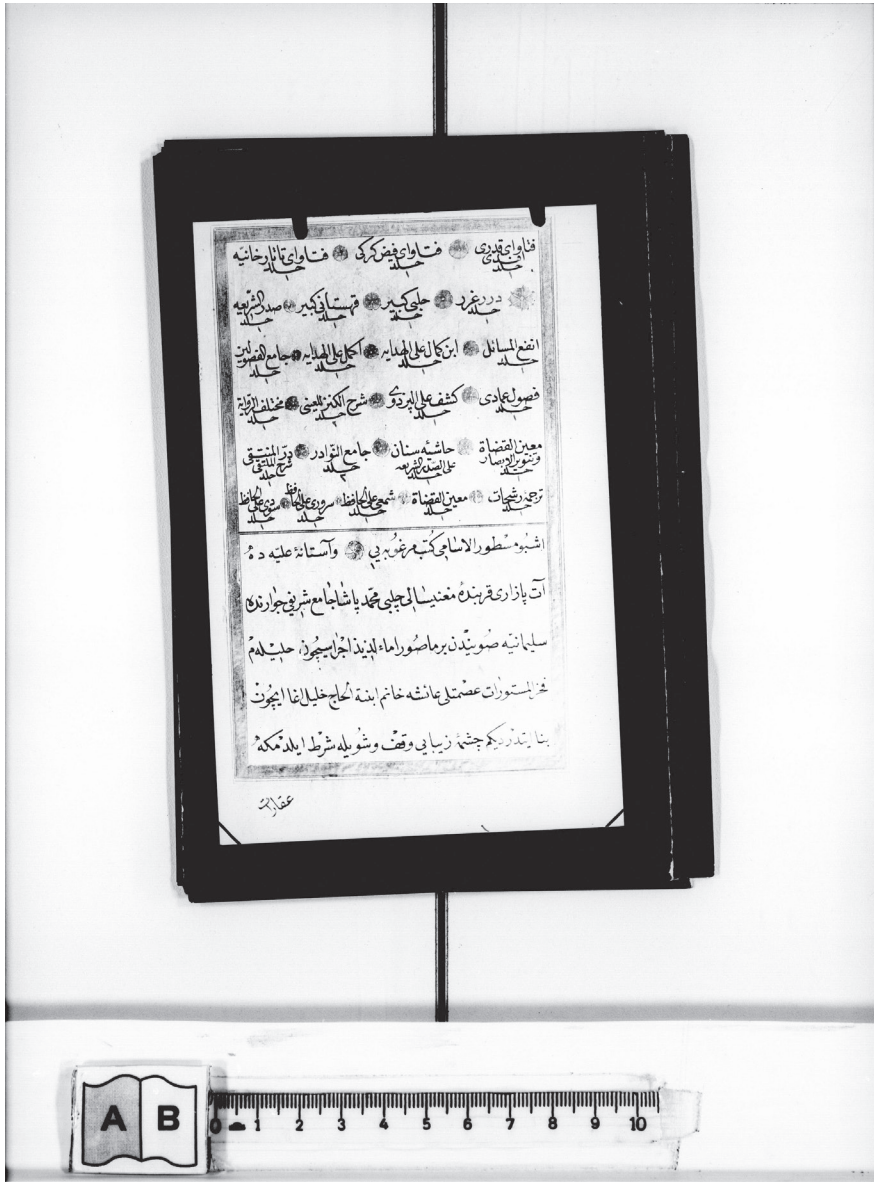 فتاوای قدری افندی جلد ١ فتاوای فیض کرکی جلد ١ فتاوای تاتارخانیه جلد ١
درر غرر جلد ١ حلبی کبیر جلد ١ قهستانی کبیر جلد ١ صدر الشریعه جلد ١
انفع المسائل جلد ١ ابن کمال علی الهدایه جلد ١ اکمل علی الهدایه جلد ١ جامع الفصولین جلد ١
فصول عمادی جلد ١ کشف علی البزدوی جلد ١ شرح الکنز للعینی جلد ١ مختلف الروایة جلد ١
معین القضاة وتنویر الابصار جلد حاشیهٔ سنان علی الصدر الشریعه جامع النوادر جلد در المنتقی شرح الملتقی جلد
ترجمهٔ رشحات جلد معین القضاة جلد شمعی علی الحافظ جلد سروری علی الحافظ جلد سودی علی الحافظ جلد
اشبو مسطور الاسامی کتب مرغوبه یی وآستانهٔ علیه ده
آت پازاری قربنده مغنیسالی چلبی محمد پاشا جامع شریفی جوارنده
سلیمانیه صویندن بر ماصورا ماء لذیذ اجراسیچون حلیله م
فخر المستورات عصمتلی عائشه خانم ابنة الحاج خلیل اغا ایچون
بنا ایتدردیکم چشمهٔ زیبایی وقف وشویله شرط ایلدم که
عقارات
A B
0 1 2 3 4 5 6 7 8 9 10